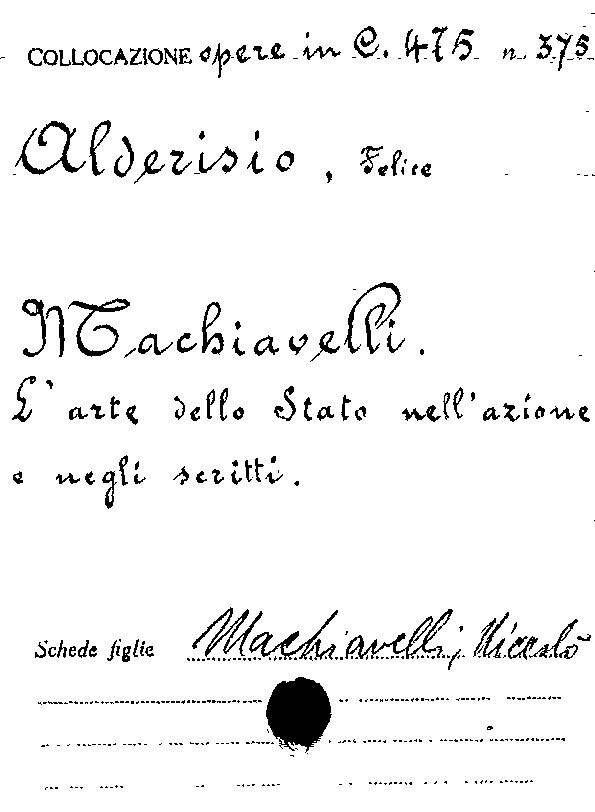 COLLOCAZIONE opere in C. 475 n. 375
Alderisio, Felice
Machiavelli.
L'arte dello Stato nell'azione
e negli scritti.
Schede figlie Machiavelli, Niccolò